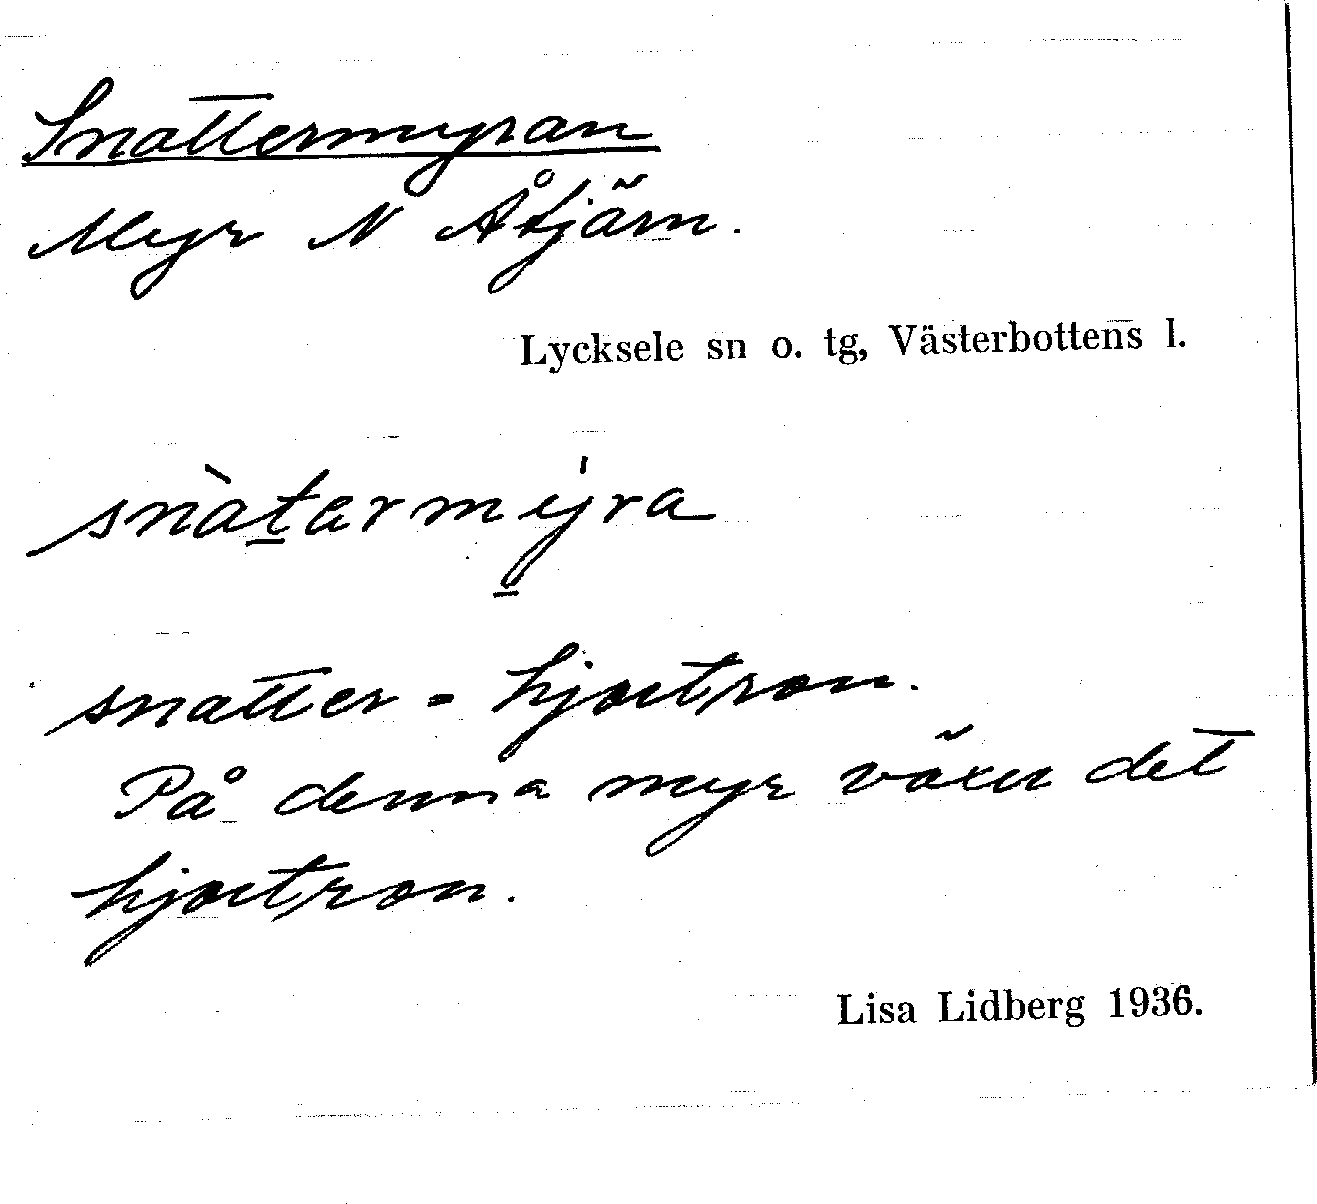 Snattermyran
Myr N Åtjärn.
Lycksele sn o. tg, Västerbottens l.
snàtarmy̍ra
snatter = hjortron.
På denna myr växer det
hjortron.
Lisa Lidberg 1936.